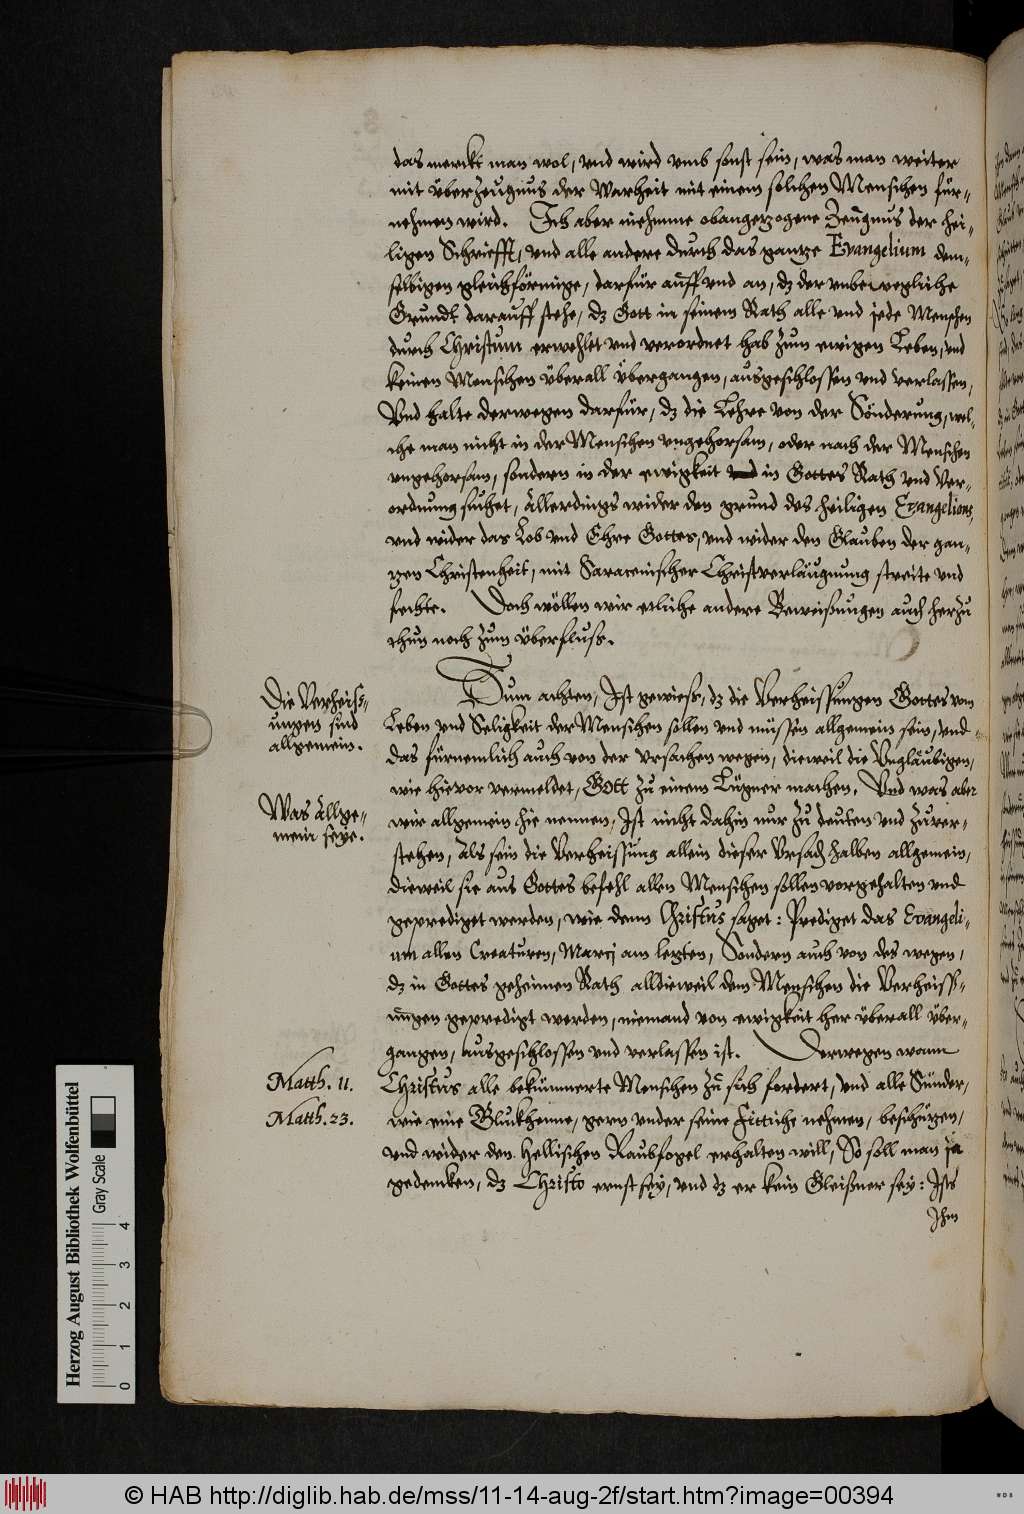 das merckt man wol, vnd wird vmb sonst sein, was man weiter
mit überzeugnus der Warheit mit einem solchen Menschen für-
nehmen wird. Ich aber nehmme obangezogene Zeugnus der hei-
ligen Schriefft, vnd alle andere durch das gantze Evangelium dem-
selbigen gleichförmige, darfür auff vnd an, dz der vnbewegliche
Grundt darauff stehe, dz Gott in seinem Rath alle vnd jede Menschen
durch Christum erwehlet vnd verordnet hab zum ewigen Leben, vnd
keinen Menschen überall übergangen, ausgeschlossen vnd verlassen,
Vnd halte derwegen darfür, dz die Lehre von der Sönderung, wel-
che man nicht in der Menschen vngehorsam, oder nach der Menschen
vngehorsam, sondern in der ewigkeit in Gottes Rath vnd Ver-
ordnung suchet, Allerdings wider den grund des heiligen Evangelions,
vnd wider das Lob vnd Ehre Gottes, vnd wider den Glauben der gan-
tzen Christenheit, mit Saracenischer Christverläugnung streite vnd
fechte. Doch wöllen wir etliche andere Beweisungen auch herzu
thun noch zum überfluss.
Die Verheiss-
ungen sind
allgemein.
Zum achten, Ist gewiess, dz die Verheissungen Gottes vom
Leben vnd Seligkeit der Menschen sollen vnd müssen allgemein sein, vnd
das fürnemlich auch von der vrsachen wegen, dieweil die Vngläubigen,
wie hievor vermeldet, Gott zu einem Lügner machen. Vnd was aber
Was Allge-
mein seye.
wir allgemein hie nennen, Ist nicht dahin nur zu deuten vnd zuver-
stehen, Als sein die Verheissung allein dieser Vrsach halben allgemein,
dieweil sie aus Gottes befehl allen Menschen sollen vorgehalten vnd
geprediget werden, wie denn Christus saget: Prediget das Evangeli-
um allen Creaturen, Marcj am letzten, Sondern auch von des wegen,
dz in Gottes geheimen Rath alldieweil dem Menschen die Verheiss-
ungen gepredigt werden, niemand von ewigkeit her überall über-
gangen, ausgeschlossen vnd verlassen ist. Derwegen wann
Matth. 11.
Christus alle bekümmerte Menschen zu sich fordert, vnd alle Sünder,
Matth. 23.
wie eine Gluckhenne, gern vnder seine Fittiche nehmen, beschützen,
vnd wider den Hellischen Raubfogel erhalten will, So soll man ja
gedencken, dz Christo ernst sey, vnd dz er kein Gleißner sey: Ists
Ihm
Herzog August Bibliothek Wolfenbüttel
Gray Scale
0 1 2 3 4
© HAB http://diglib.hab.de/mss/11-14-aug-2f/start.htm?image=00394